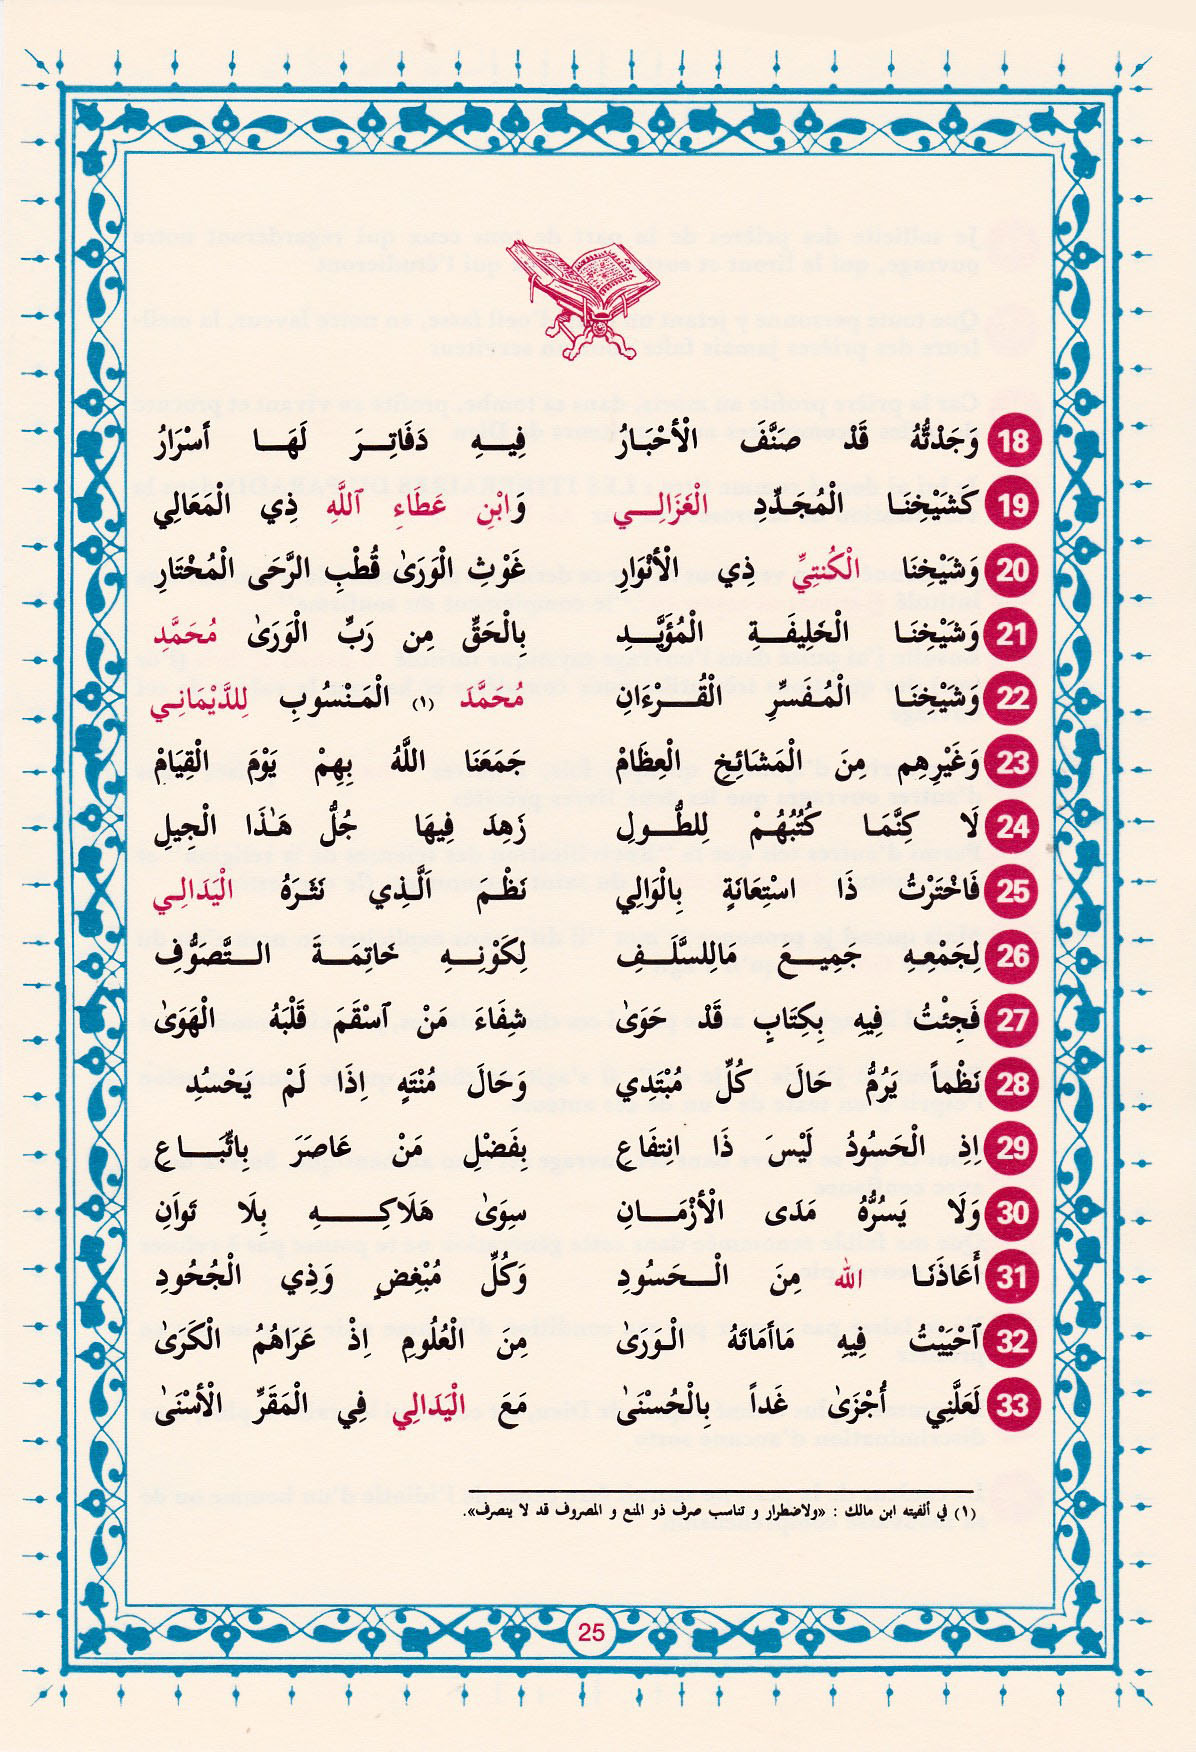 18 وَجَدْتُّهُ قَدْ صَنَّفَ الْأَحْبَارُ فِيهِ دَفَاتِرَ لَهَا أَسْرَارُ
19 كَشَيْخِنَا الْمُجَدِّدِ الْغَزَالِي وَابْنِ عَطَاءِ ٱللَّهِ ذِي الْمَعَالِي
20 وَشَيْخِنَا الْكُنتِيِّ ذِي الْأَنْوَارِ غَوْثِ الْوَرَىٰ قُطْبِ الرَّحَى الْمُخْتَارِ
21 وَشَيْخِنَا الْخَلِيفَةِ الْمُؤَيَّدِ بِالْحَقِّ مِن رَبِّ الْوَرَىٰ مُحَمَّدِ
22 وَشَيْخِنَا الْمُفَسِّرِ الْقُرْءَانِ مُحَمَّدَ (١) الْمَنْسُوبِ لِلدَّيْمَانِي
23 وَغَيْرِهِم مِنَ الْمَشَائِخِ الْعِظَامْ جَمَعَنَا اللَّهُ بِهِمْ يَوْمَ الْقِيَامْ
24 لَا كِنَّمَا كُتُبُهُمْ لِلطُّولِ زَهِدَ فِيهَا جُلُّ هَـٰذَا الْجِيلِ
25 فَاخْتَرْتُ ذَا اسْتِعَانَةٍ بِالْوَالِي نَظْمَ ٱلَّذِي نَثَرَهُ الْيَدَالِي
26 لِجَمْعِهِ جَمِيعَ مَاللسَّلَفِ لِكَوْنِهِ خَاتِمَةَ التَّصَوُّفِ
27 فَجِئْتُ فِيهِ بِكِتَابٍ قَدْ حَوَىٰ شِفَاءَ مَنْ ٱسْقَمَ قَلْبَهُ الْهَوَىٰ
28 نَظْماً يَرُمُّ حَالَ كُلِّ مُبْتَدِي وَحَالَ مُنْتَهٍ اِذَا لَمْ يَحْسُدِ
29 اِذِ الْحَسُودُ لَيْسَ ذَا انتِفَاعِ بِفَضْلِ مَنْ عَاصَرَ بِاتِّبَاعِ
30 وَلَا يَسُرُّهُ مَدَى الْأَزْمَانِ سِوَىٰ هَلَاكِهِ بِلَا تَوَاَنِ
31 أَعَاذَنَا الله مِنَ الْحَسُودِ وَكُلِّ مُبْغِضٍ وَذِي الْجُحُودِ
32 ٱحْيَيْتُ فِيهِ مَاأَمَاتَهُ الْوَرَىٰ مِن الْعُلُومِ اِذْ عَرَاهُمُ الْكَرَىٰ
33 لَعَلَّنِي أُجْزَىٰ غَداً بِالْحُسْنَىٰ مَعَ الْيَدَالِي فِي الْمَقَرِّ الْأَسْنَىٰ
(١) في ألفيته ابن مالك : «ولاضطرار و تناسب صرف ذو المنع و المصروف قد لا ينصرف».
25